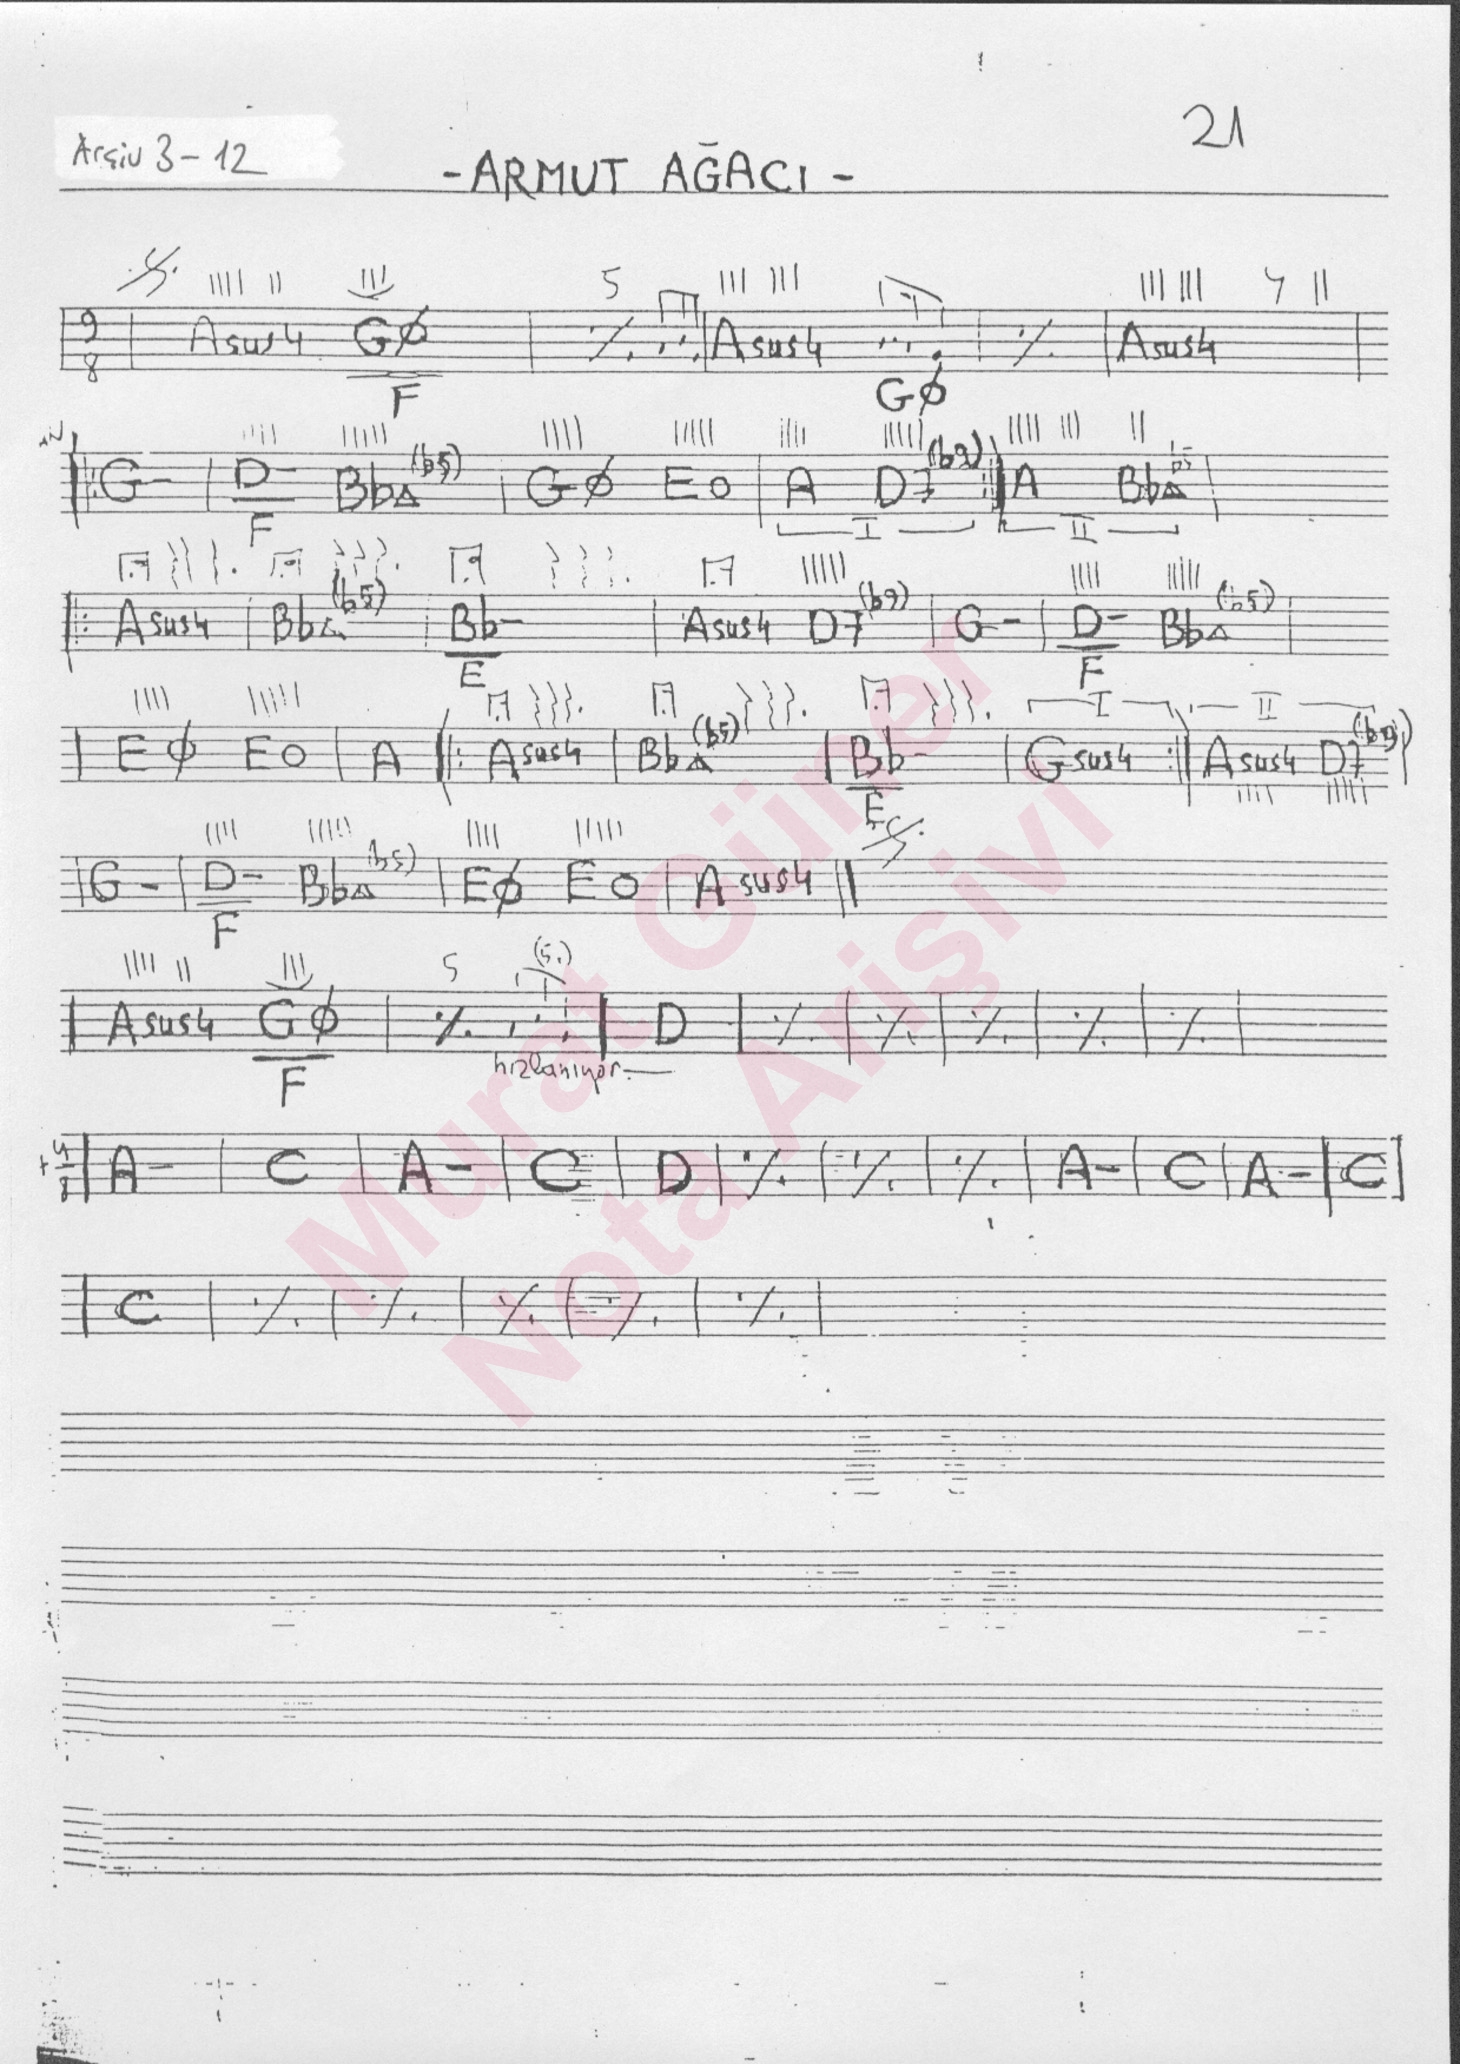 21
Arşiv 3-12
- ARMUT AĞACI -
9/8 Asus4 GØ/F 5 ٪ Asus4 GØ ٪ Asus4 4
G- D-/F Bb△(b5) GØ Eo A D7(b9) I A Bb△b5 II
Asus4 Bb△(b5) Bb-/E Asus4 D7(b9) G- D-/F Bb△(b5)
EØ Eo A Asus4 Bb△(b5) Bb-/E I Gsus4 II Asus4 D7(b9)
G- D-/F Bb△(b5) EØ Eo Asus4
Asus4 GØ/F 5 ٪ (5.) D ٪ ٪ ٪ ٪ ٪
hızlanıyor
A- C A- C D ٪ ٪ ٪ A- C A- C
C ٪ ٪ ٪ ٪ ٪
Murat Güner
Nota Arişivi